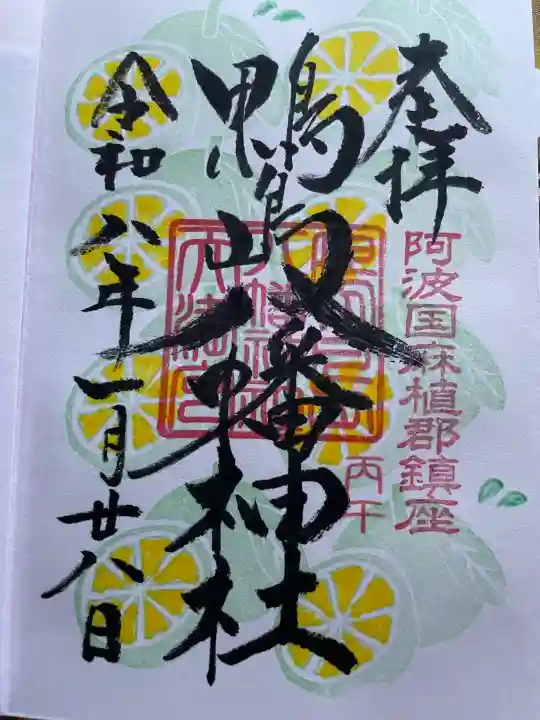 奉拝
阿波国麻植郡鎮座
丙午
鴨島八幡神社
令和八年一月廿八日